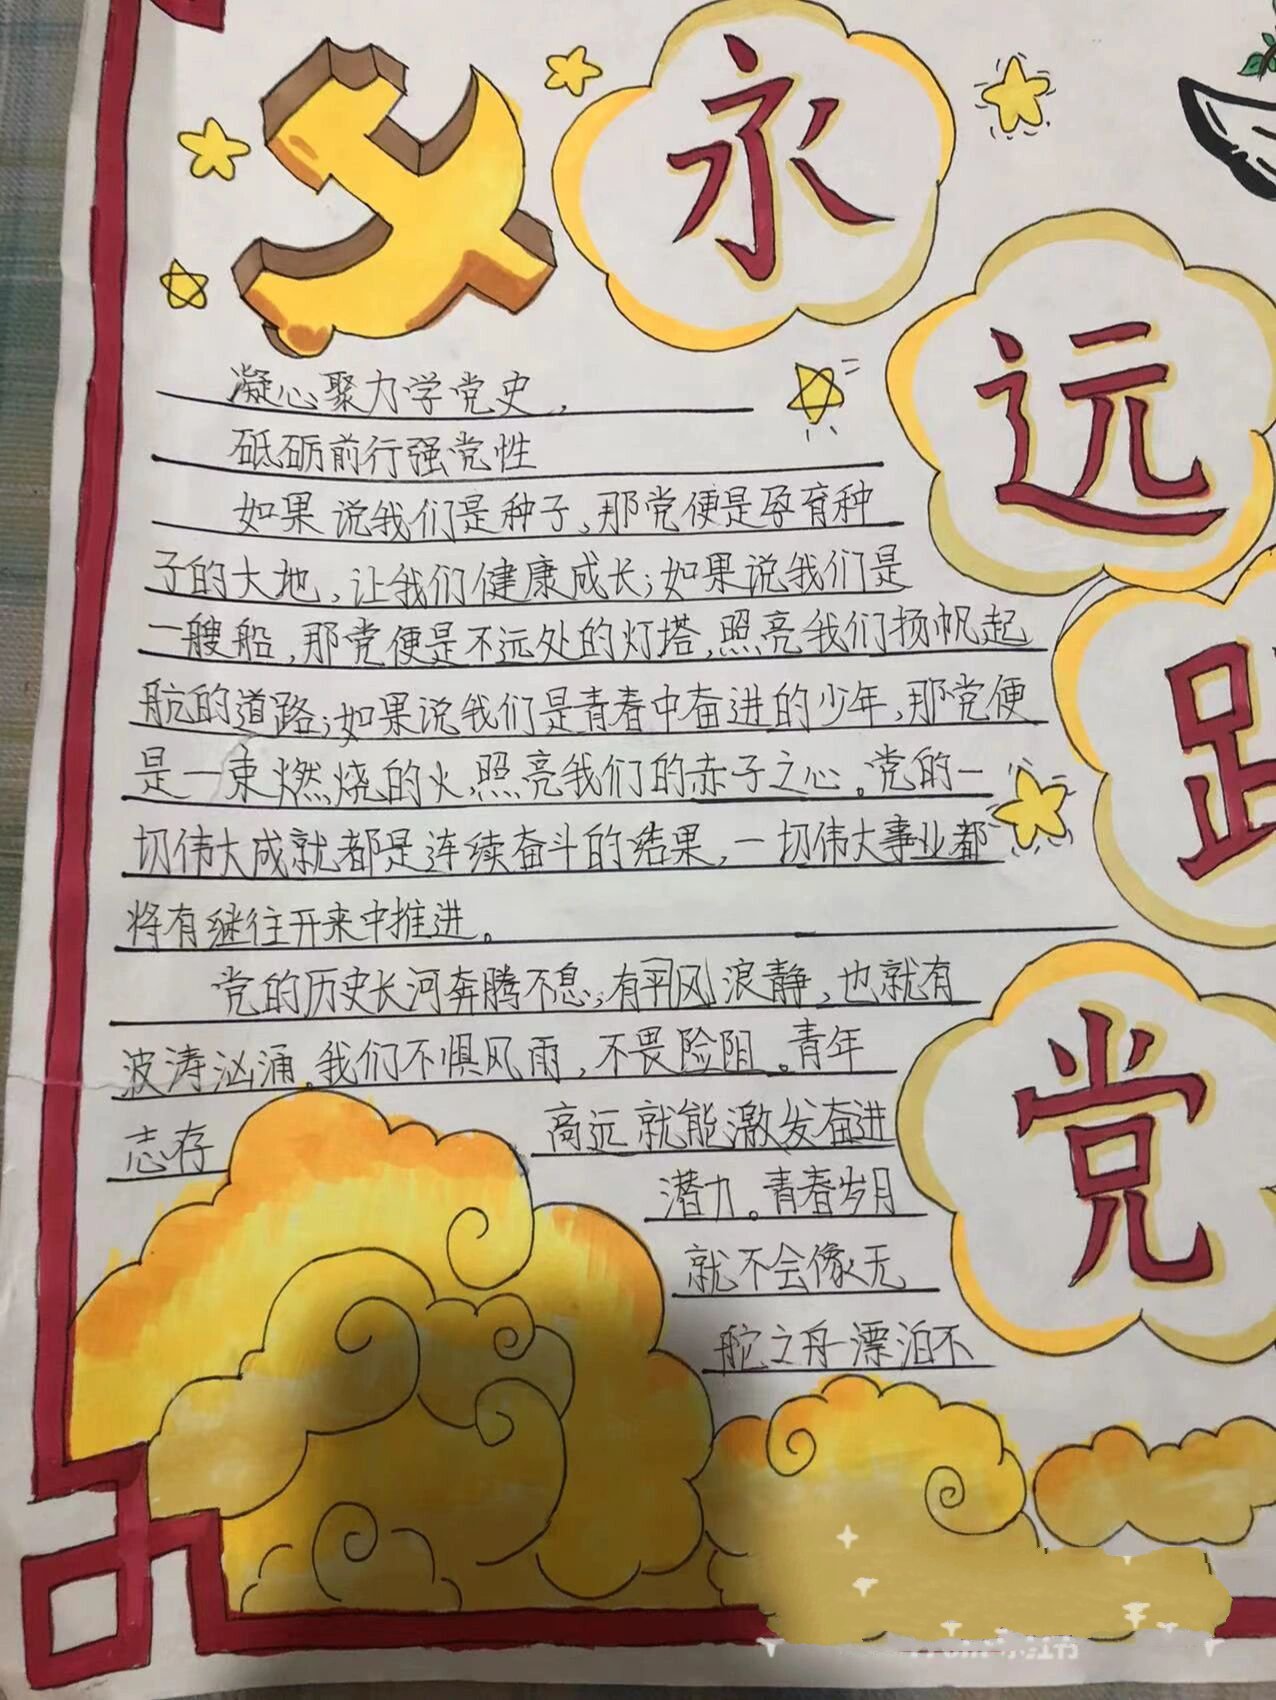 永
远
党
凝心聚力学党史，
砥砺前行强党性
如果说我们是种子，那党便是孕育种
子的大地，让我们健康成长；如果说我们是
一艘船，那党便是不远处的灯塔，照亮我们扬帆起
航的道路；如果说我们是青春中奋进的少年，那党便
是一束燃烧的火，照亮我们的赤子之心。党的一
切伟大成就都是连续奋斗的结果，一切伟大事业都
将有继往开来中推进。
党的历史长河奔腾不息；有平风浪静，也就有
波涛汹涌。我们不惧风雨，不畏险阻。青年
志存高远就能激发奋进
潜力。青春岁月
就不会像无
舵之舟漂泊不